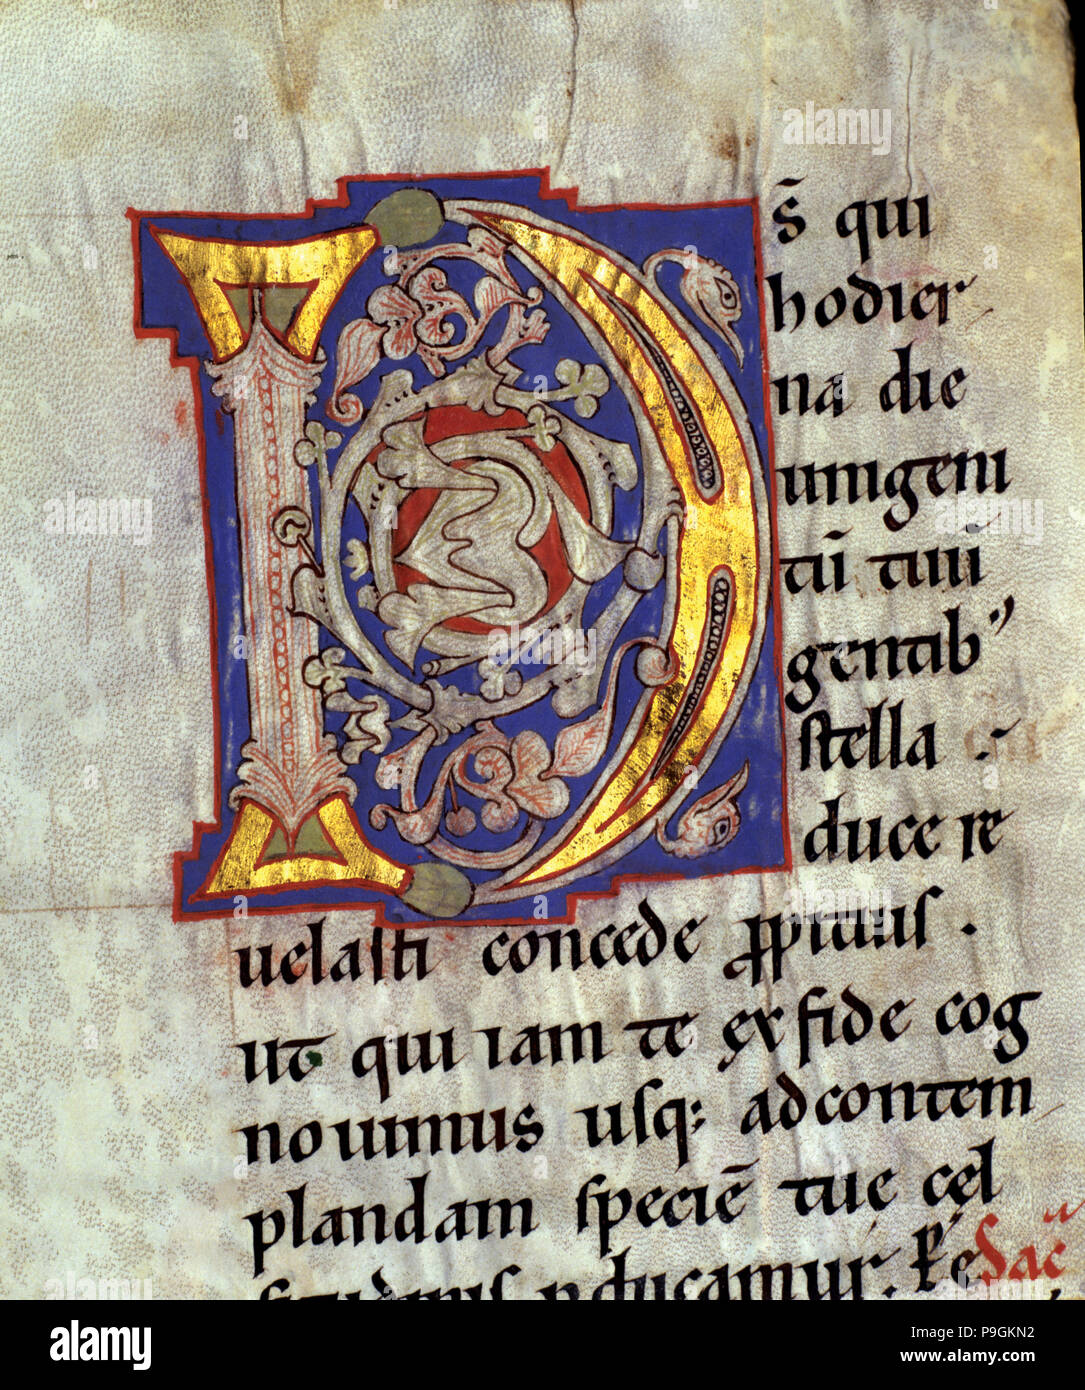 Ds̄ qui
hodier
na die
unigeni
tū tuū
gentib᾿
stella
duce re
uelasti concede ꝓpitius.
ut qui iam te ex fide cog
nouimus usq; ad contem
plandam speciē tue cel
situdinis ꝑducamur. P̲ e Sac
alamy stock photo
P9GKN2
www.alamy.com